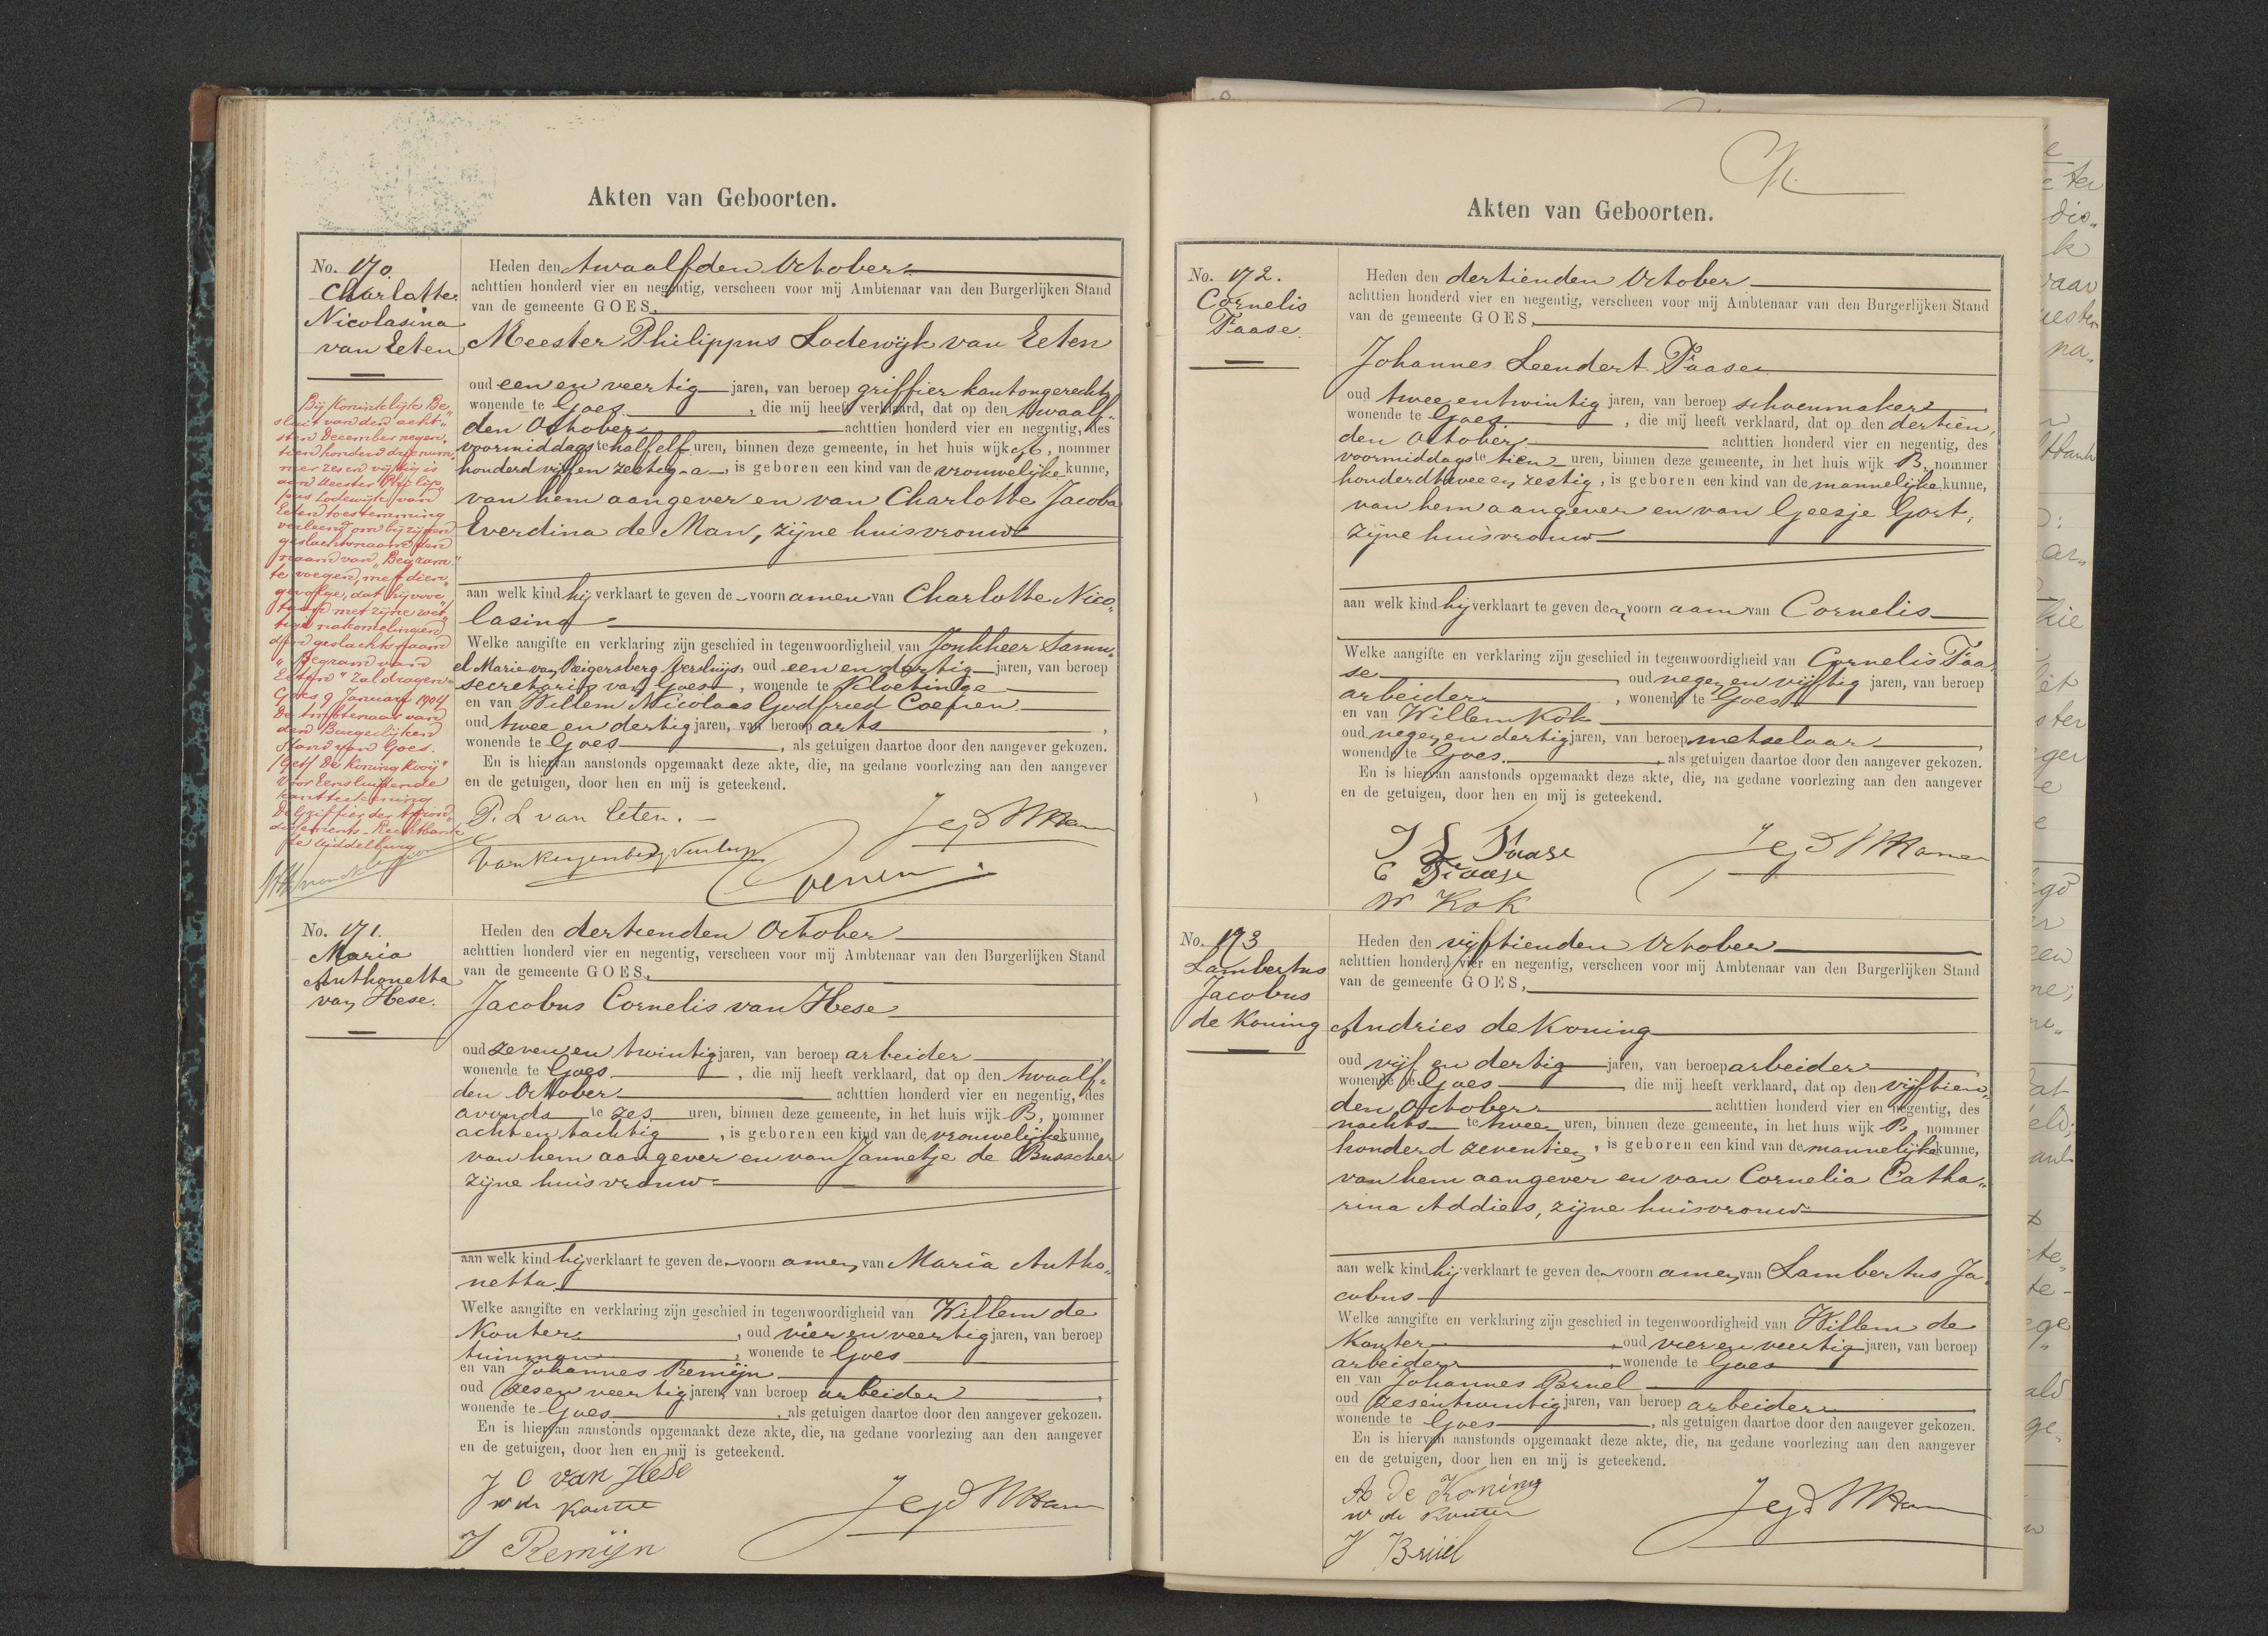 Akten van Geboorten.
No. 170.
Charlotte
Nicolasina
van Eeten
Bij Koninklijk Be„
sluit van den acht„
sten December negen„
tien honderd drie num„
mer zes en vijftig is
aan Meester Philip„
pus Lodewijk van
Eeten toestemming
verleend om bij zijnen
geslachtsnaam den
naam van „Begram"
te voegen, met dien
gevolge, dat hij voor
taan met zijne wet„
tige nakomelingen
den geslachtsnaam
„Begram van
Eeten" zal dragen.
Goes 9 Januari 1904
De Ambtenaar van
den Burgerlijken
Stand van Goes.
(Get) De Koning Kooij"
Voor Eensluidende
kantteekening
De Griffier der Arron„
dissements-Rechtbank
te Middelburg
Heden den twaalfden October
achttien honderd vier en negentig, verscheen voor mij Ambtenaar van den Burgerlijken Stand
van de gemeente GOES,
Meester Philippus Lodewijk van Eeten
oud een en veertig jaren, van beroep griffier kantongerecht
wonende te Goes, die mij heeft verklaard, dat op den twaalf„
den October achttien honderd vier en negentig, des
voormiddags te half elf uren, binnen deze gemeente, in het huis wijk A, nommer
honderd vijf en zestig a, is geboren een kind van de vrouwelijke kunne,
van hem aangever en van Charlotte Jacoba
Everdina de Man, zijne huisvrouw
aan welk kind hij verklaart te geven de voornamen van Charlotte Nico„
lasina
Welke aangifte en verklaring zijn geschied in tegenwoordigheid van Jonkheer Samu„
el Marie van Reigersberg Versluijs, oud een en dertig jaren, van beroep
secretaris van Goes, wonende te Kloetinge
en van Willem Nicolaas Godfried Coenen
oud twee en dertig jaren, van beroep arts,
wonende te Goes, als getuigen daartoe door den aangever gekozen.
En is hiervan aanstonds opgemaakt deze akte, die, na gedane voorlezing aan den aangever
en de getuigen, door hen en mij is geteekend.
P. L van Eeten.
van Reigersberg Versluijs
Coenen
No. 171.
Maria
Anthonetta
van Hese.
Heden den dertienden October
achttien honderd vier en negentig, verscheen voor mij Ambtenaar van den Burgerlijken Stand
van de gemeente GOES,
Jacobus Cornelis van Hese
oud zeven en twintig jaren, van beroep arbeider
wonende te Goes, die mij heeft verklaard, dat op den twaalf„
den October achttien honderd vier en negentig, des
avonds te zes uren, binnen deze gemeente, in het huis wijk B, nommer
acht en tachtig, is geboren een kind van de vrouwelijke kunne,
van hem aangever en van Jannetje de Busscher
zijne huisvrouw
aan welk kind hij verklaart te geven de voornamen van Maria Antho„
netta
Welke aangifte en verklaring zijn geschied in tegenwoordigheid van Willem de
Kouter, oud vier en veertig jaren, van beroep
tuinman, wonende te Goes
en van Johannes Remijn
oud zes en veertig jaren, van beroep arbeider,
wonende te Goes, als getuigen daartoe door den aangever gekozen.
En is hiervan aanstonds opgemaakt deze akte, die, na gedane voorlezing aan den aangever
en de getuigen, door hen en mij is geteekend.
J C van Hese
W de Kouter
J Remijn
Akten van Geboorten.
No. 172.
Cornelis
Faase.
Heden den dertienden October
achttien honderd vier en negentig, verscheen voor mij Ambtenaar van den Burgerlijken Stand
van de gemeente GOES,
Johannes Leendert Faase
oud twee en twintig jaren, van beroep schoenmaker
wonende te Goes, die mij heeft verklaard, dat op den dertien„
den October achttien honderd vier en negentig, des
voormiddags te tien uren, binnen deze gemeente, in het huis wijk B, nommer
honderd twee en zestig, is geboren een kind van de mannelijke kunne,
van hem aangever en van Geesje Gort,
zijne huisvrouw
aan welk kind hij verklaart te geven den voornaam van Cornelis
Welke aangifte en verklaring zijn geschied in tegenwoordigheid van Cornelis Faa„
se, oud negen en vijftig jaren, van beroep
arbeider, wonende te Goes
en van Willem Kok
oud negen en dertig jaren, van beroep metselaar,
wonende te Goes, als getuigen daartoe door den aangever gekozen.
En is hiervan aanstonds opgemaakt deze akte, die, na gedane voorlezing aan den aangever
en de getuigen, door hen en mij is geteekend.
J L Faase
C Faase
W Kok
No. 173
Lambertus
Jacobus
de Koning
Heden den vijftienden October
achttien honderd vier en negentig, verscheen voor mij Ambtenaar van den Burgerlijken Stand
van de gemeente GOES,
Andries de Koning
oud vijf en dertig jaren, van beroep arbeider
wonende te Goes, die mij heeft verklaard, dat op den vijftien„
den October achttien honderd vier en negentig, des
nachts te twee uren, binnen deze gemeente, in het huis wijk B, nommer
honderd zeventien, is geboren een kind van de mannelijke kunne,
van hem aangever en van Cornelia Catha„
rina Addiers, zijne huisvrouw
aan welk kind hij verklaart te geven de voornamen van Lambertus Ja„
cobus
Welke aangifte en verklaring zijn geschied in tegenwoordigheid van Willem de
Kouter, oud vier en veertig jaren, van beroep
arbeider, wonende te Goes
en van Johannes Bruel
oud zesentwintig jaren, van beroep arbeider,
wonende te Goes, als getuigen daartoe door den aangever gekozen.
En is hiervan aanstonds opgemaakt deze akte, die, na gedane voorlezing aan den aangever
en de getuigen, door hen en mij is geteekend.
A de Koning
W de Kouter
J Brüel